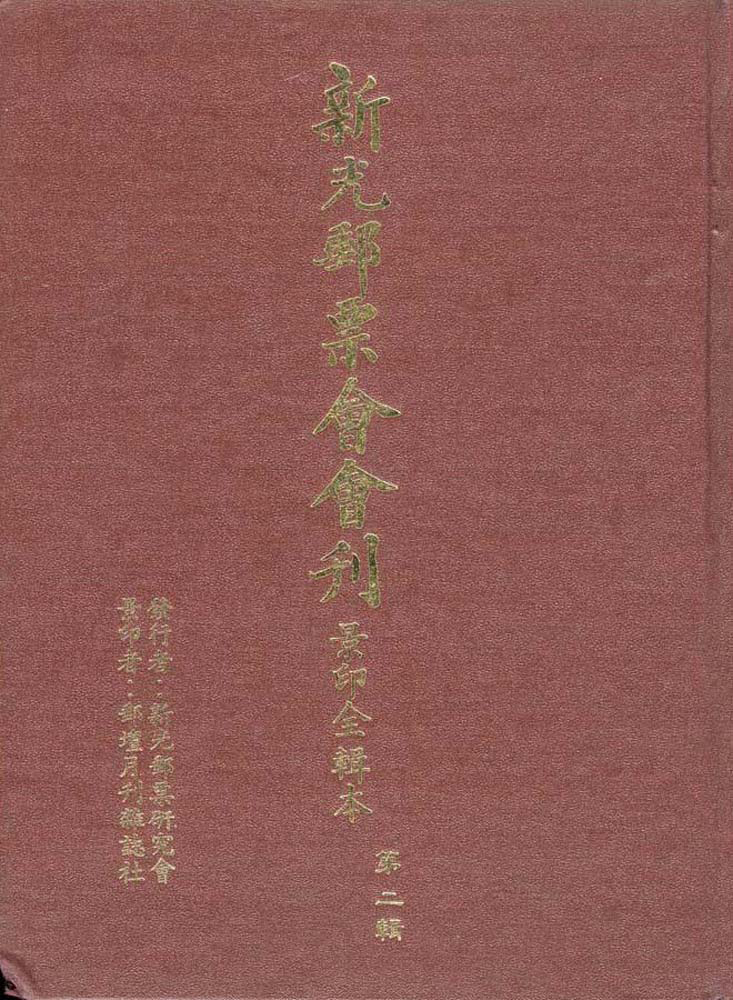 新光郵票會會刊 景印全輯本
第二輯
發行者：新光郵票研究會
景印者：郵壇月刊雜誌社